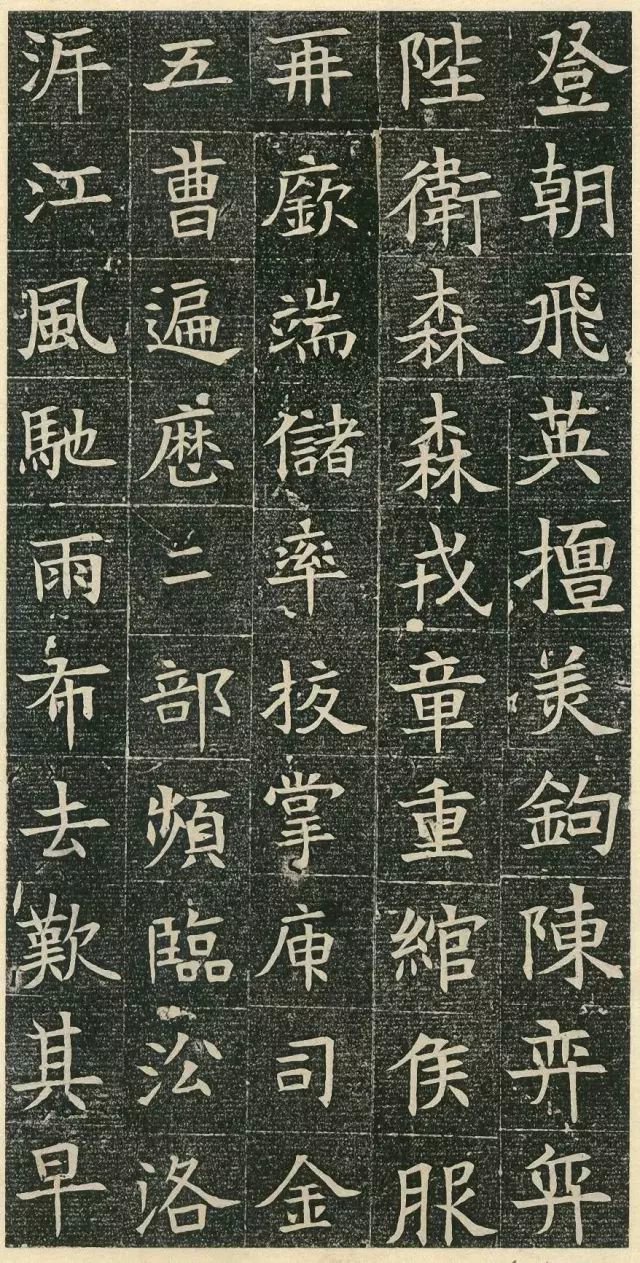 登朝飛英擅美鉤陳弈弈
陛衛森森戎章重綰侯服
再廞端儲率拔掌庾司金
五曹遍歷二部頻臨沿洛
泝江風馳雨布去歎其早